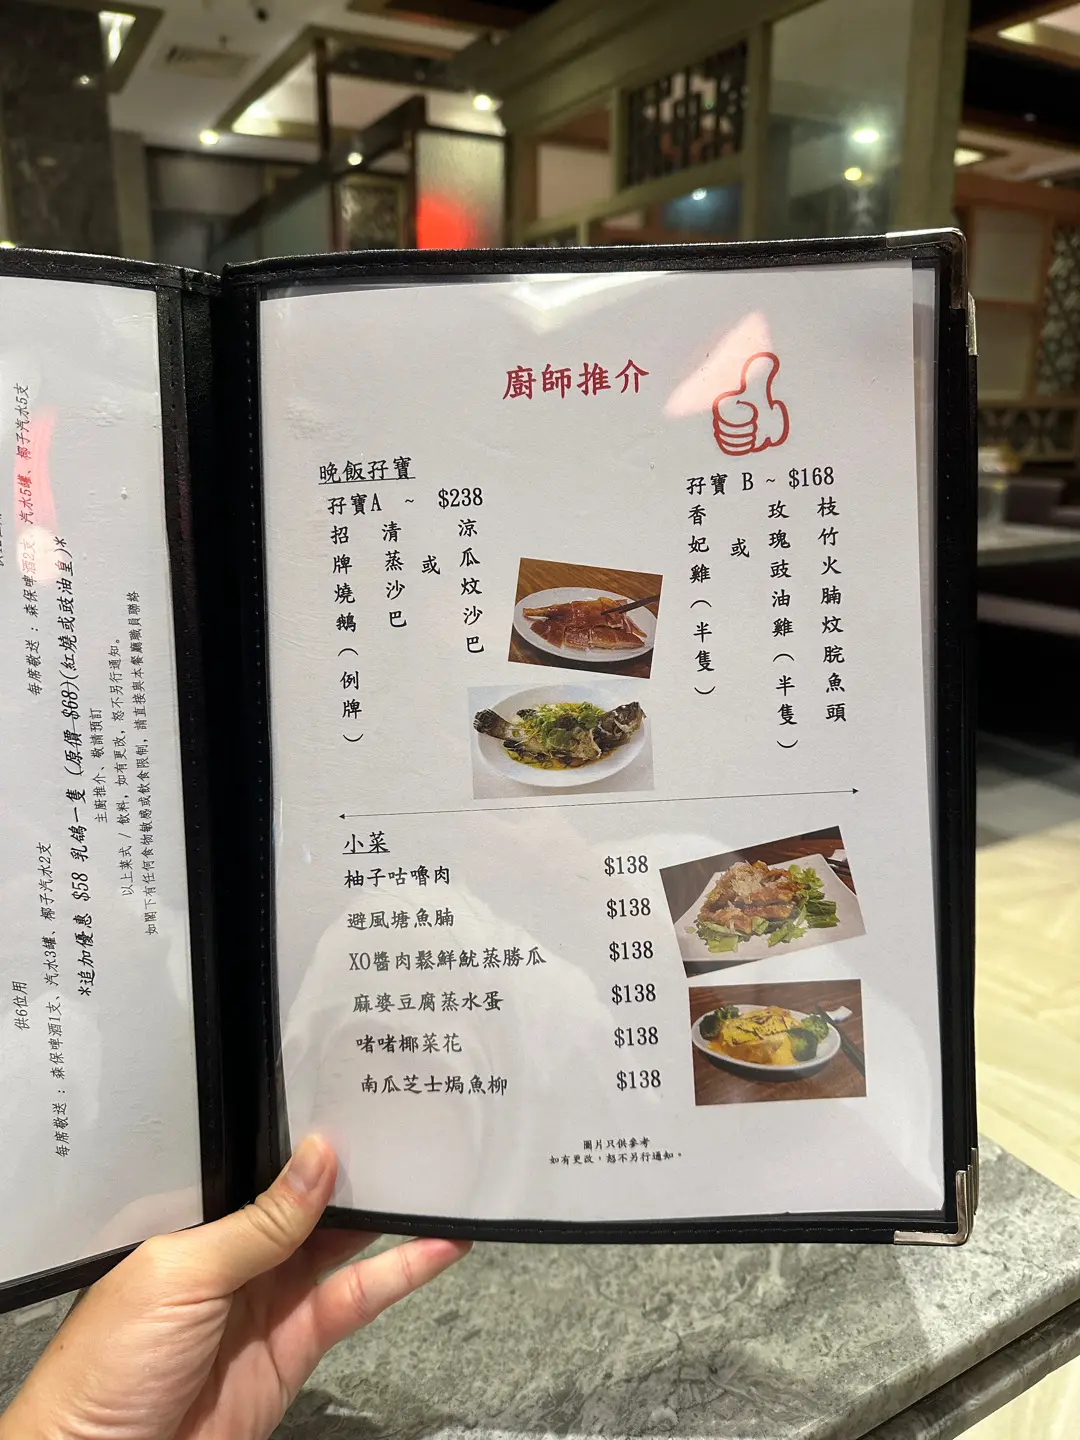 廚師推介
晚飯孖寶
孖寶A ~ $238
招牌燒鵝（例牌）
清蒸沙巴
或
涼瓜炆沙巴
孖寶 B ~ $168
香妃雞（半隻）
或
玫瑰豉油雞（半隻）
枝竹火腩炆脘魚頭
小菜
柚子咕嚕肉 $138
避風塘魚腩 $138
XO醬肉鬆鮮魷蒸勝瓜 $138
麻婆豆腐蒸水蛋 $138
啫啫椰菜花 $138
南瓜芝士焗魚柳 $138
圖片只供參考
如有更改，恕不另行通知。
每席敬送：森保啤酒2支、汽水5罐、椰子汽水5支
供6位用
每席敬送：森保啤酒1支、汽水3罐、椰子汽水2支
*追加優惠 $58 乳鴿一隻 (原價 $68)(紅燒或豉油皇)*
主廚推介、敬請預訂
以上菜式 / 飲料，如有更改，恕不另行通知。
如閣下有任何食物敏感或飲食限制，請直接與本餐廳職員聯絡